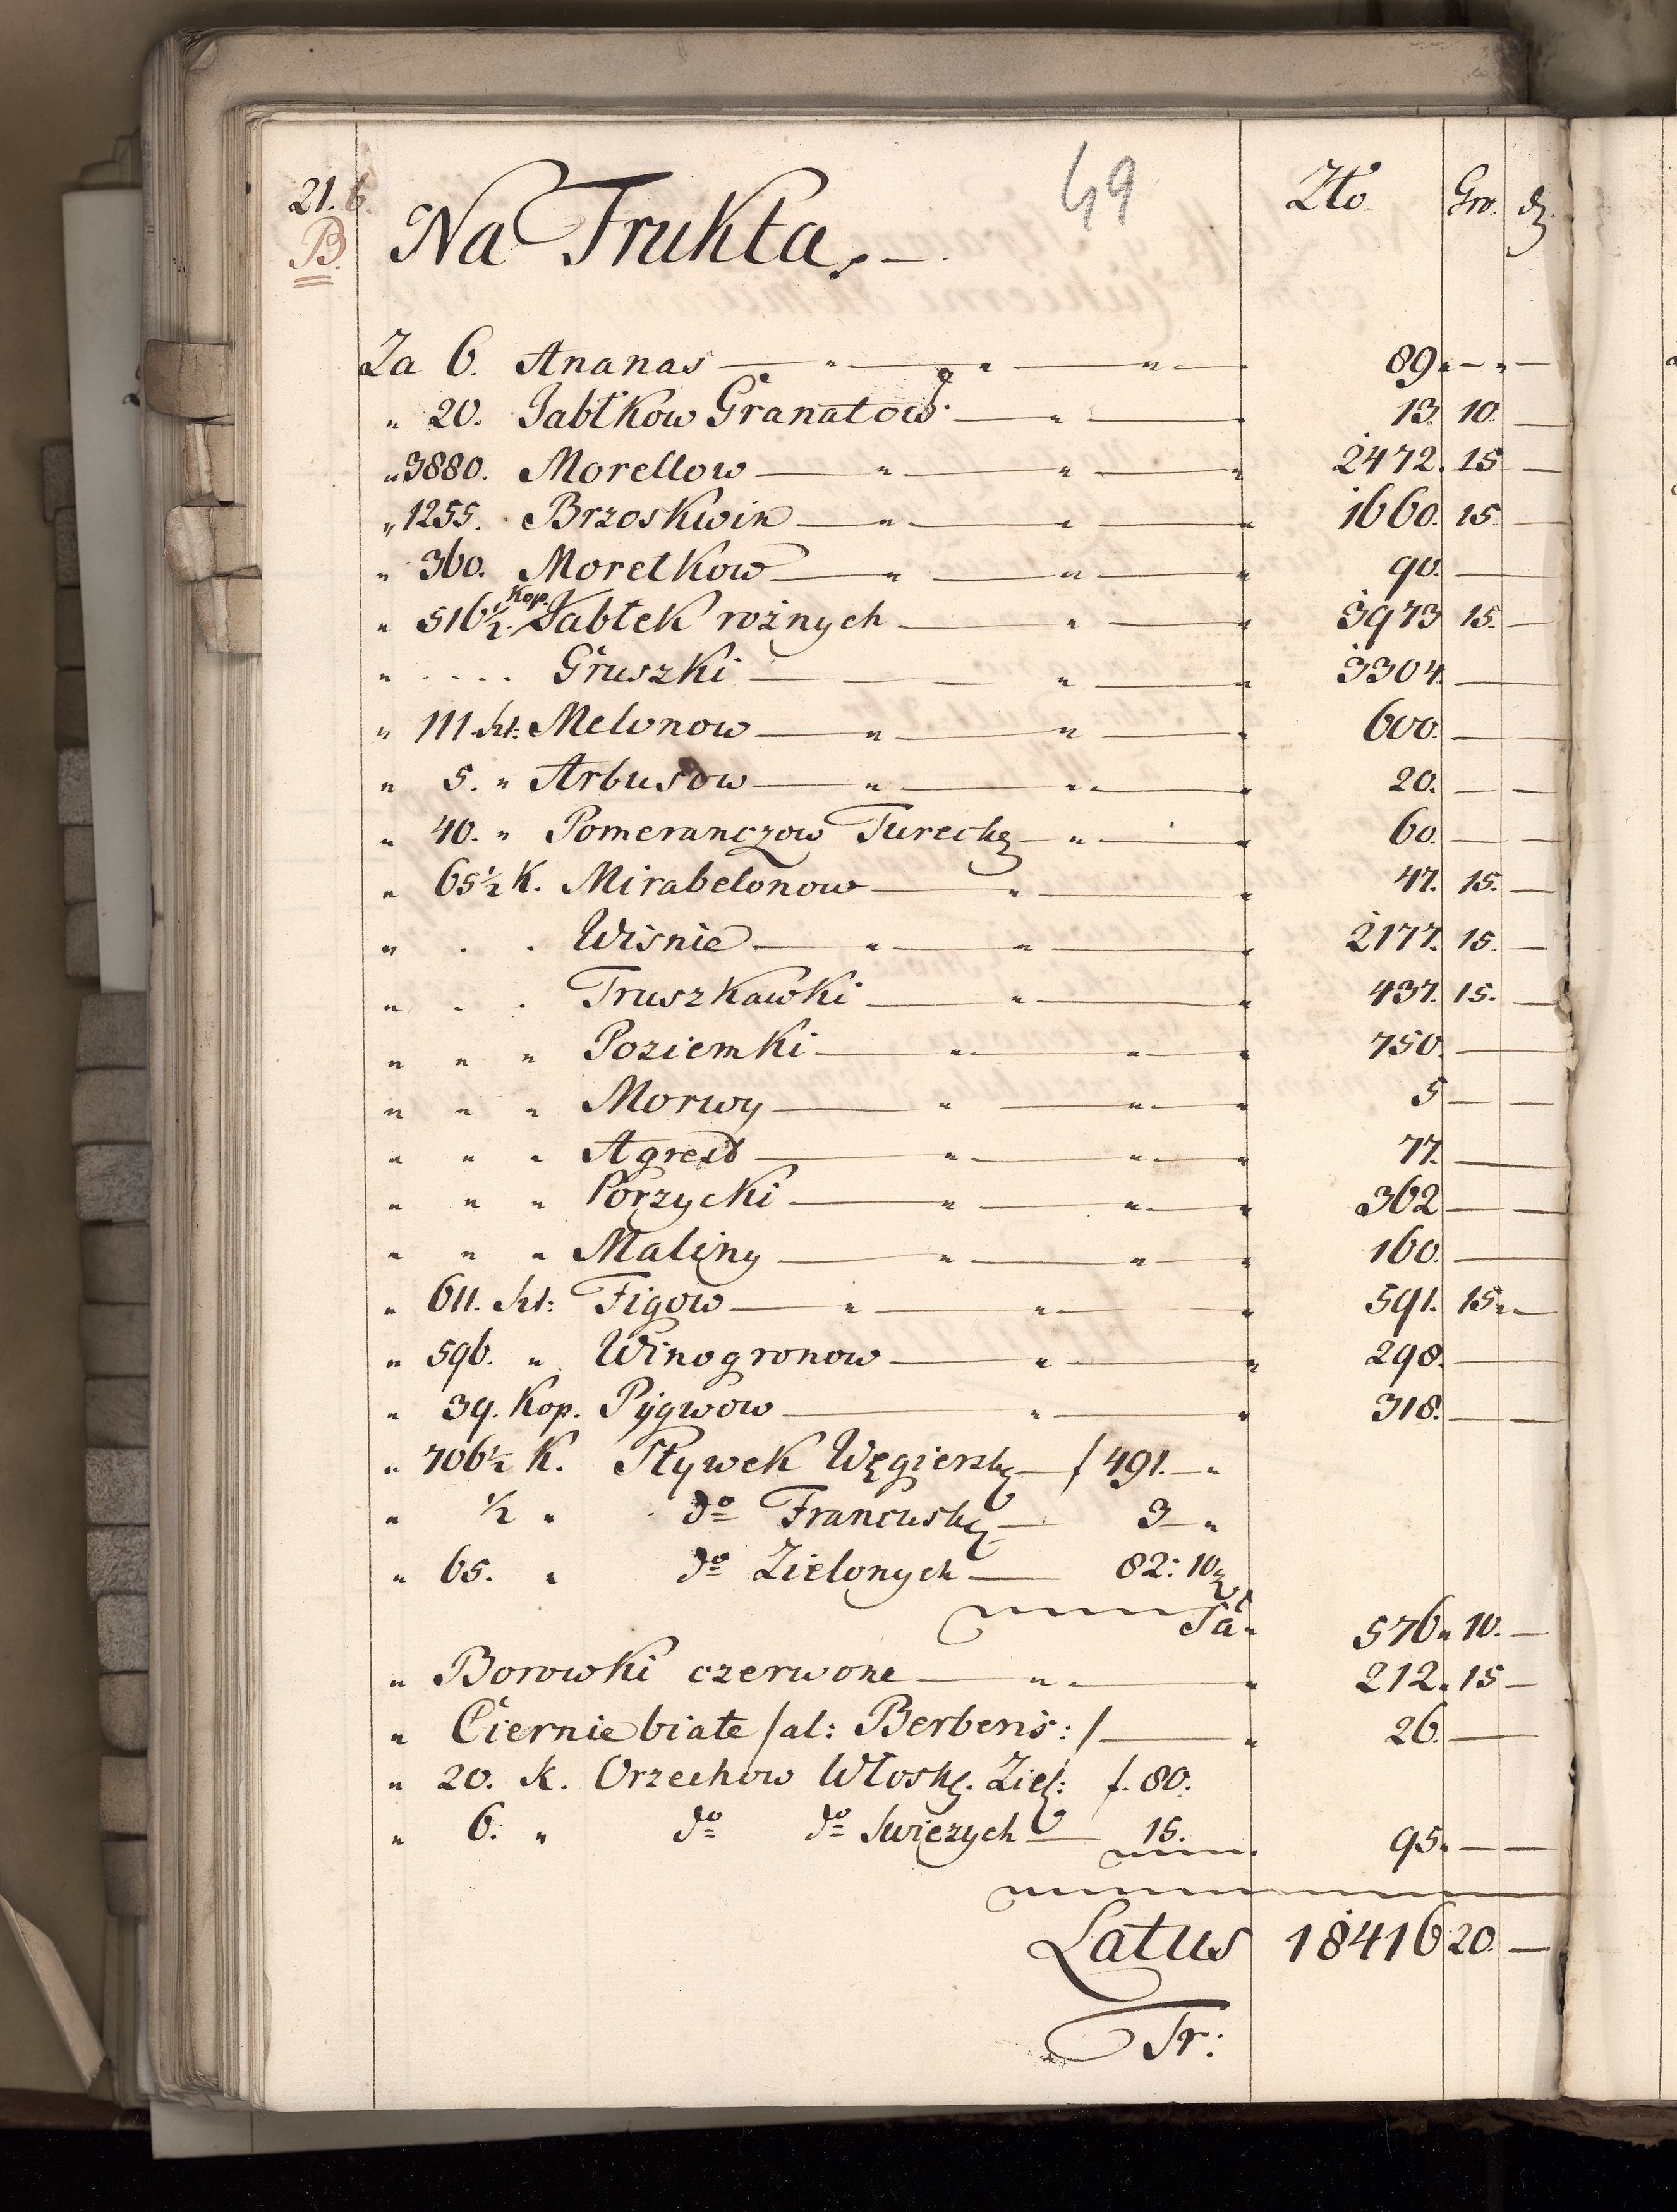 49
21. 6. Zło. Gro. d.
B. Na Frukta. —
Za 6. Ananas — 89. —
" 20. Jabłkow Granatow — 13. 10. —
" 3880. Morellow — 2472. 15 —
" 1255. Brzoskwin — 1660. 15 —
" 360. Morelkow — 90. —
" 516½. Kop. Jabłek rożnych — 3973 15. —
" .... Gruszki — 3304. —
" 111 szt: Melonow — 600. —
" 5. " Arbusow — 20. —
" 40. " Pomeranczow Turech — 60. —
" 65½ K. Mirabelonow — 47. 15. —
" . . Wisnie — 2177. 15. —
" . . Truszkawki — 437. 15. —
" " " Poziemki — 750. —
" " " Morwy — 5 —
" " " Agrest — 77. —
" " " Porzycki — 362 —
" " " Maliny — 160. —
" 611. szt: Figow — 591. 15 " —
" 596. " Winogronow — 298. —
" 39. Kop. Pygwow — 318. —
" 706½ K. Sływek Węgiersk — f 491. — "
" ½ " do Francusk — 3 — "
" 65. " do Zielonych — 82: 10
Sa 576 " 10. —
" Borowki czerwone — 212. 15 —
" Ciernie białe /al: Berberis:/ — 26. —
" 20. K. Orzechow Włosk. Ziel: f. 80.
" 6. " do do Swiezych — 15. 95. —
Latus 18416 20. —
Tr: